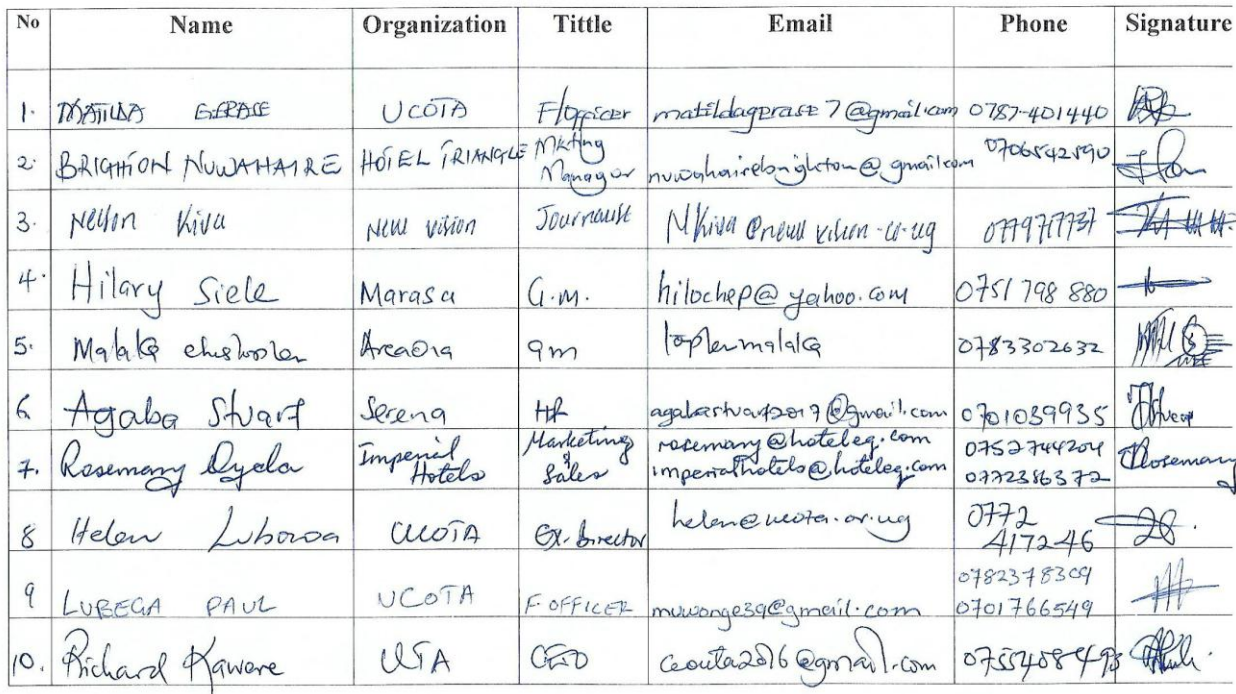 No Name Organization Tittle Email Phone Signature
1. MATILDA GERASE UCOTA F/Officer matildagerase7@gmail.com 0787-401440
2. BRIGHTON NUWAHAIRE HOTEL TRIANGLE Mkting Manager nuwahairebrighton@gmail.com 0706542590
3. Nelson Kiva New Vision Journalist Nkiva@newvision.co.ug 0779717737
4. Hilary Siele Marasa G.M. hilochep@yahoo.com 0751 798 880
5. Malala Arcadia gm toplermalala 0783302632
6. Agaba Stuart Serena HR agabastuart2017@gmail.com 0701039935
7. Rosemary Oyela Imperial Hotels Marketing & Sales rosemary@hoteleq.com imperialhotels@hoteleq.com 0752744204 0772386372 Rosemary
8 Helen Lubowa UCOTA Ex. Director helen@ucota.or.ug 0772 417246
9 LUBEGA PAUL UCOTA F. OFFICER muwonge39@gmail.com 0782378309 0701766549
10. Richard Kawere UTA CEO ceouta2016@gmail.com